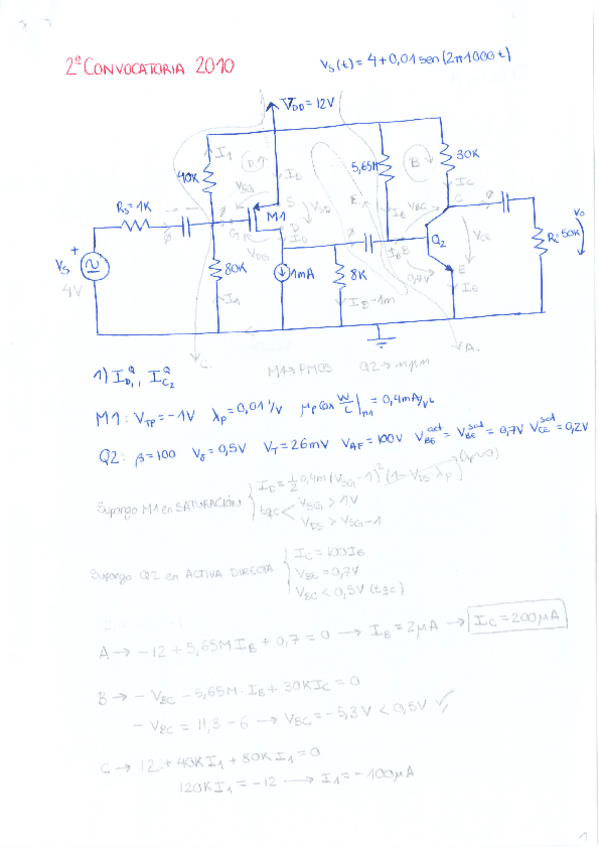 2ª CONVOCATORIA 2010
Vs(t) = 4+0,01 sen(2π1000t)
VDD = 12V
I1
D
40K
ID
5,65M
B
30K
VSG
S
VSD
IC
Rs = 1K
M1
G
D
ID
VDG
IB
VBC
C
Q2
VCE
RL = 50K
Vo
+
Vs
4V
80K
1mA
8K
0,7V
E
I1
ID-1m
IE
C.
M1→PMOS Q2→npn
A.
1) ID1^Q, IC2^Q
M1: VTP = -1V λp = 0,01 1/V μp Cox W/L|M1 = 0,4mA/V²
Q2: β = 100 Vγ = 0,5V VT = 26mV VAF = 100V VBE^act = VBE^sat = 0,7V VCE^sat = 0,2V
Supongo M1 en SATURACIÓN
ID = 1/2 0,4m (VSG - 1)² (1 - VDS λp)
tqc
VSG > 1V
VDS > VSG - 1
Supongo Q2 en ACTIVA DIRECTA
IC = 100IB
VBE = 0,7V
VBC < 0,5V (tqc)
A → -12 + 5,65M IB + 0,7 = 0 → IB = 2μA → IC = 200μA
B → - VBC - 5,65M · IB + 30K IC = 0
- VBC = 11,3 - 6 → VBC = -5,3V < 0,5V ✓
C → 12 + 40K I1 + 80K I1 = 0
120K I1 = -12 → I1 = -100μA
1